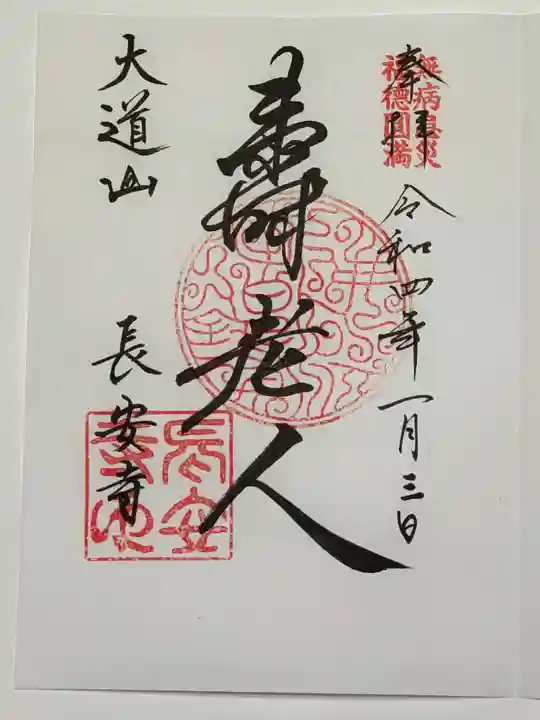 奉拝
無病息災
福徳圓満
令和四年一月三日
壽老人
大道山
長安寺